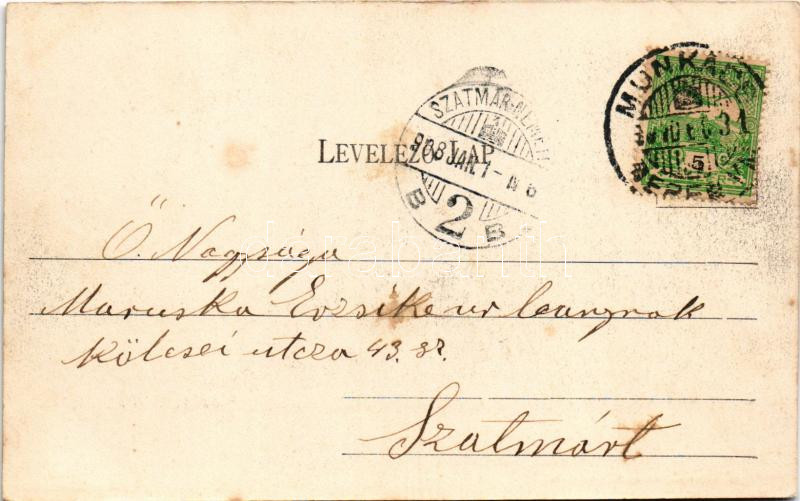 MUNKÁCS
31
5
SZATMÁR-NÉMETI
908 JAN. 1
B 2 B
LEVELEZŐ-LAP
Ő Nagysága
Maruska Erzsike úr leánynak
Kölcsei utcza 43. sz.
Szatmárt